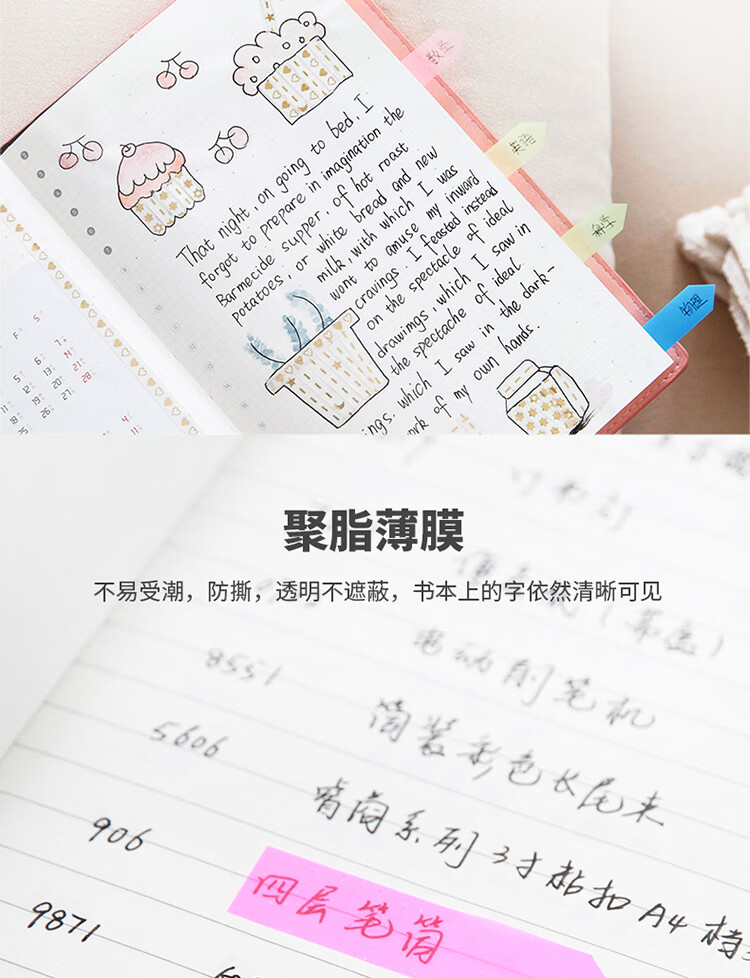 数学
英语
科学
物理
That night, on going to bed, I
forgot to prepare in imagination the
Barmecide supper, of hot roast
potatoes, or white bread and new
milk, with which I was
wont to amuse my inward
cravings. I feasted instead
on the spectacle of ideal
drawings, which I saw in
the spectache of ideal
ings, which I saw in the dark-
ork of my own hands.
聚脂薄膜
不易受潮，防撕，透明不遮蔽，书本上的字依然清晰可见
电动削笔机
8551
筒装彩色长尾夹
5606
背筒系列 3寸粘扣 A4 档
906
四层笔筒
9871